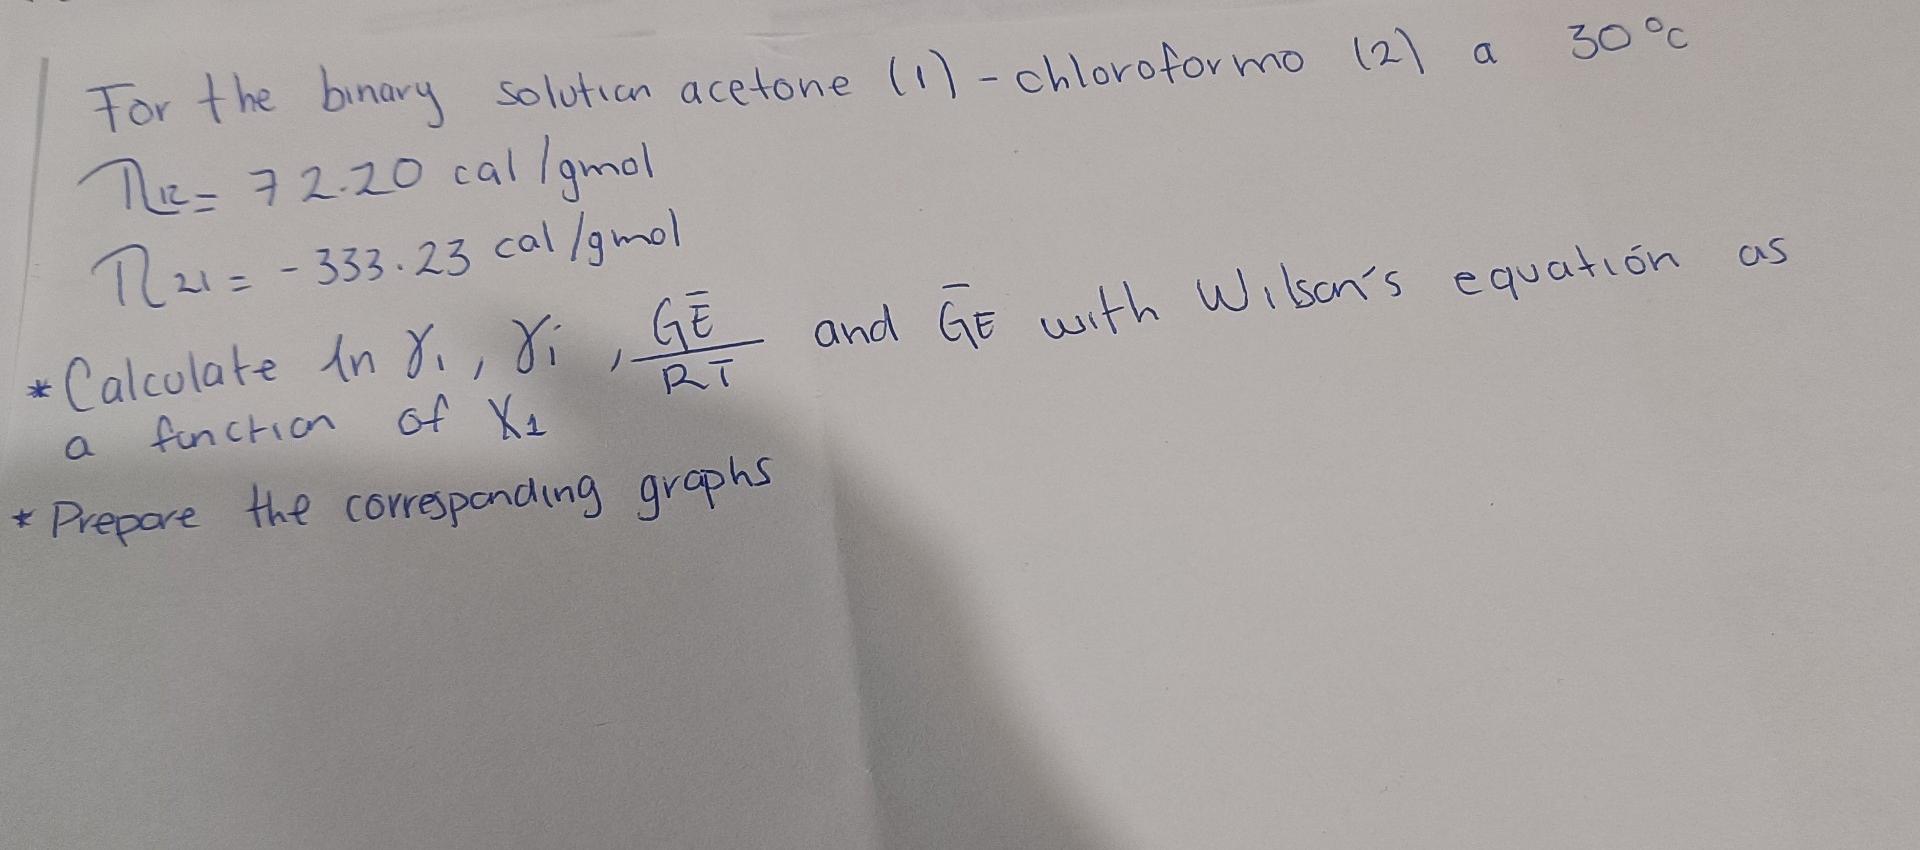 For the binary solution acetone (1) - chloroformo (2) a 30 °C
π12 = 72.20 cal/gmol
π21 = -333.23 cal/gmol
* Calculate ln γi, γi, GĒ/RT and ḠE with Wilson's equatión as
a function of X1
* Prepare the corresponding graphs